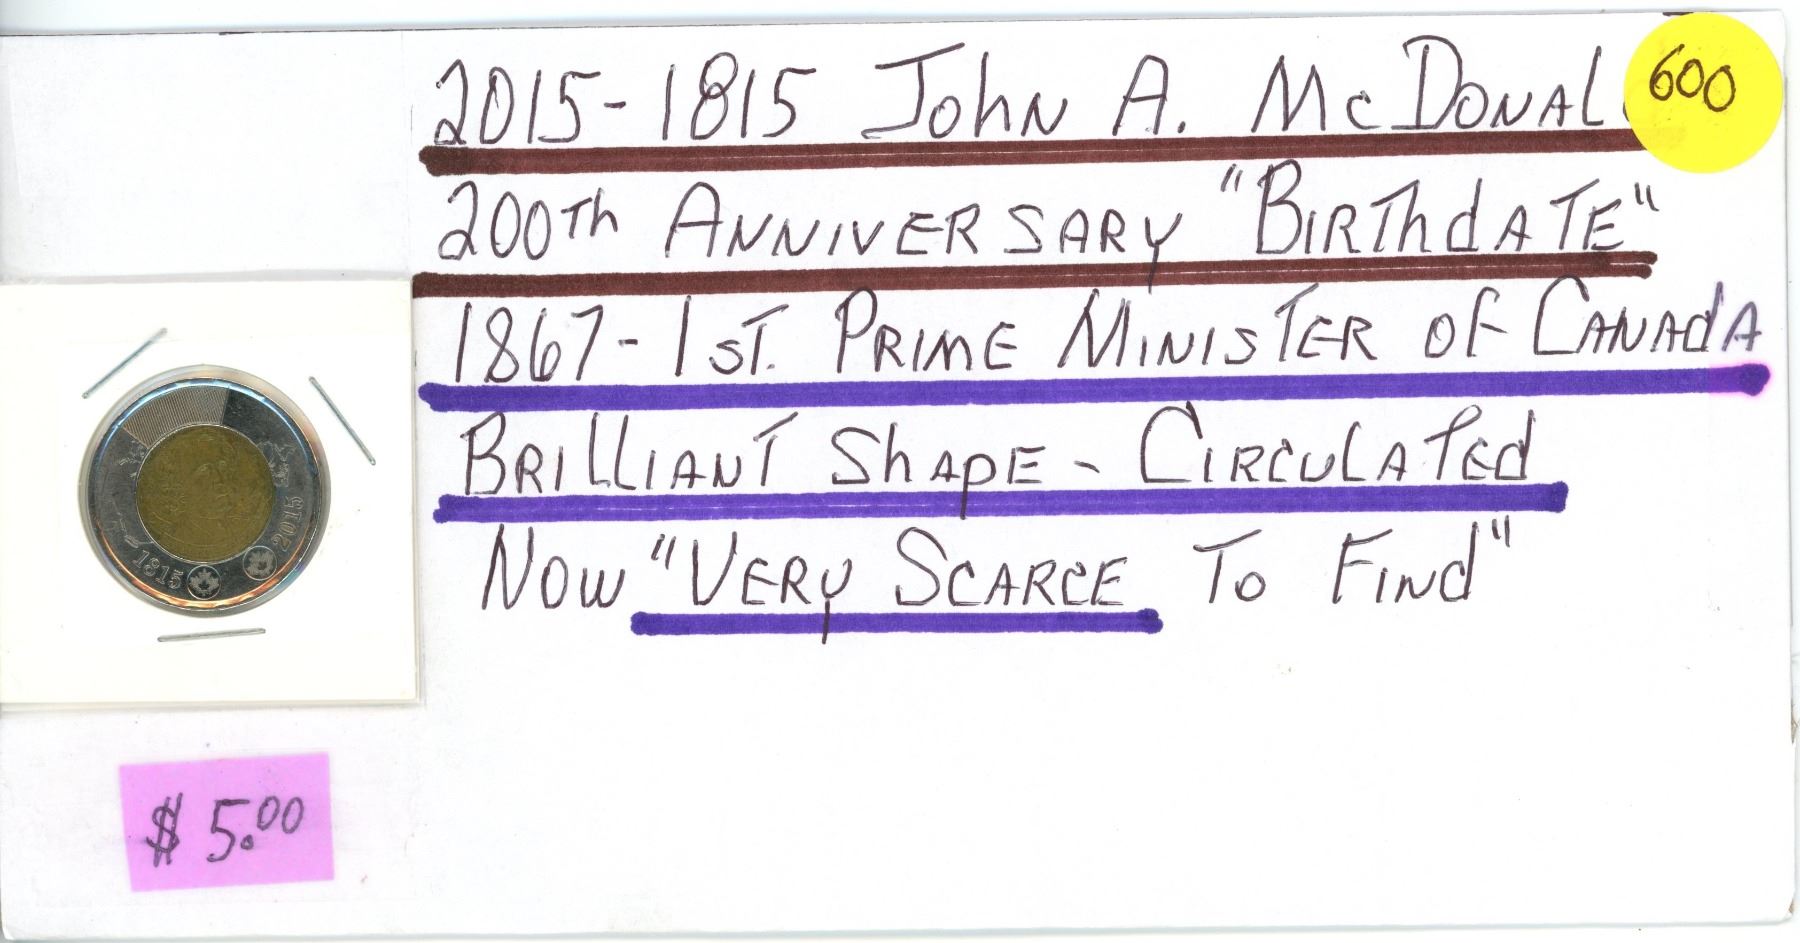 2015-1815 John A. McDONAL
600
200Th ANNIVERSARY "BIRThdATE"
1867-1ST. PRIME MINISTER OF CANAdA
BRILLIANT ShAPE - CIRCULATEd
NOW "VERY SCARCE TO FINd"
1815
2015
$ 5.00